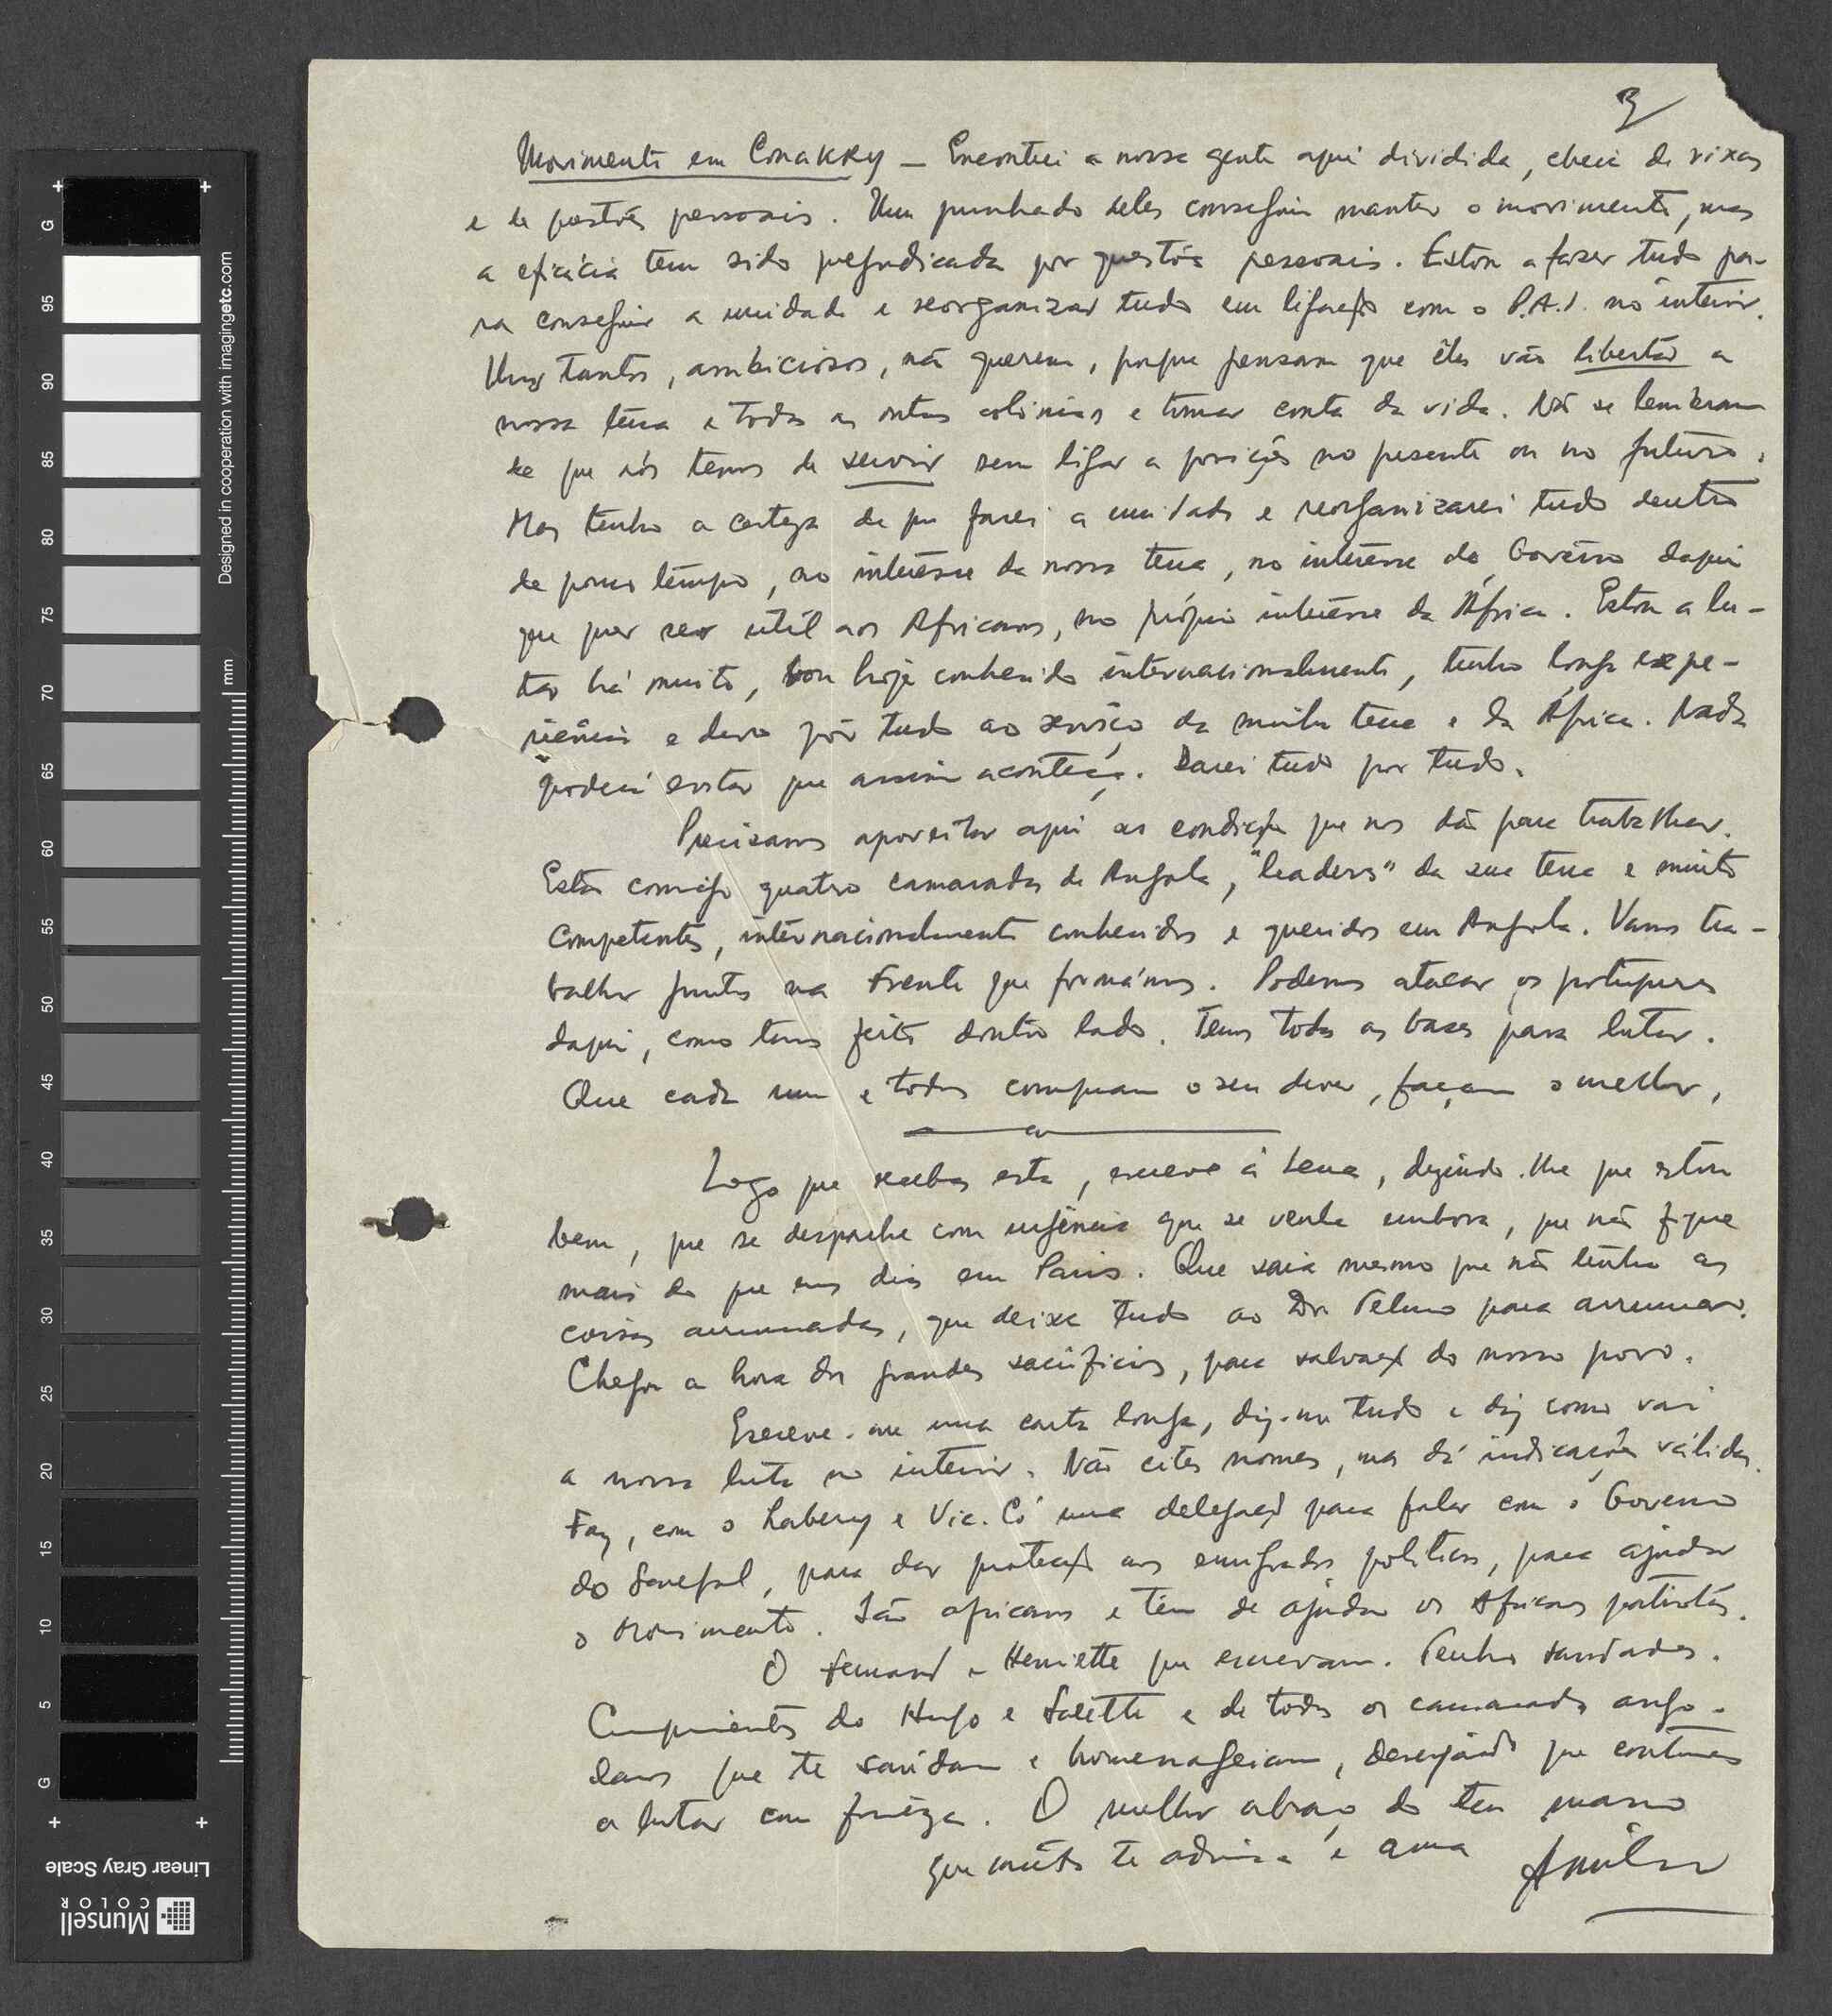 3
Movimento em Conakry — Encontrei a nossa gente aqui dividida, cheia de rixas
e de questões pessoais. Um punhado deles conseguiu manter o movimento, mas
a eficácia tem sido prejudicada por questões pessoais. Estou a fazer tudo pa-
ra conseguir a unidade e reorganizar tudo em ligação com o P.A.I. no interior.
Uns tantos, ambiciosos, não querem, porque pensam que êles vão libertar a
nossa terra e todas as outras colónias e tomar conta da vida. Não se lembram
de que nós temos de servir sem ligar a posições no presente ou no futuro.
Mas tenho a certeza de que farei a unidade e reorganizarei tudo dentro
de pouco tempo, no interêsse da nossa terra, no interêsse do Govêrno daqui
que quer ser util aos Africanos, no próprio interêsse da África. Estou a lu-
tar há muito, sou hoje conhecido internacionalmente, tenho longa expe-
riência e devo pôr tudo ao serviço da minha terra e da África. Nada
poderá evitar que assim aconteça. Darei tudo por tudo.
Precisamos aproveitar aqui as condições que nos dão para trabalhar.
Estão comigo quatro camaradas de Angola, "leaders" da sua terra e muito
competentes, internacionalmente conhecidos e queridos em Angola. Vamos tra-
balhar juntos na Frente que formámos. Podemos atacar os portugueses
daqui, como temos feito doutro lado. Temos todas as bases para lutar.
Que cada um e todos cumpram o seu dever, façam o melhor.
Logo que recebas esta, escreve à Lena, dizendo-lhe que estou
bem, que se despache com urgência que se venha embora, que não fique
mais do que uns dias em Paris. Que saia mesmo que não tenha as
coisas arrumadas, que deixe tudo ao Dr. Telmo para arrumar.
Chegou a hora dos grandes sacrifícios, para salvação do nosso povo.
Escreve-me uma carta longa, diz-me tudo e diz como vai
a nossa luta no interior. Não cites nomes, mas dá indicações válidas.
Faz, com o Labery e Vic. Có uma delegação para falar com o Governo
do Senegal, para dar protecção aos emigrados politicos, para ajudar
o movimento. São africanos e têm de ajudar os Africanos patriotas.
O Fernand e Henriette que escrevam. Tenho saudades.
Cumprimentos do Hugo e Salette e de todos os camaradas ango-
lanos que te saúdam e homenageiam, desejando que continues
a lutar com firmeza. O melhor abraço do teu mano
que muito te admira e ama Amílcar
Designed in cooperation with imagingetc.com
mm
G 95 90 85 80 75 70 65 60 55 50 45 40 35 30 25 20 15 10 5 G
Linear Gray Scale
Munsell
COLOR